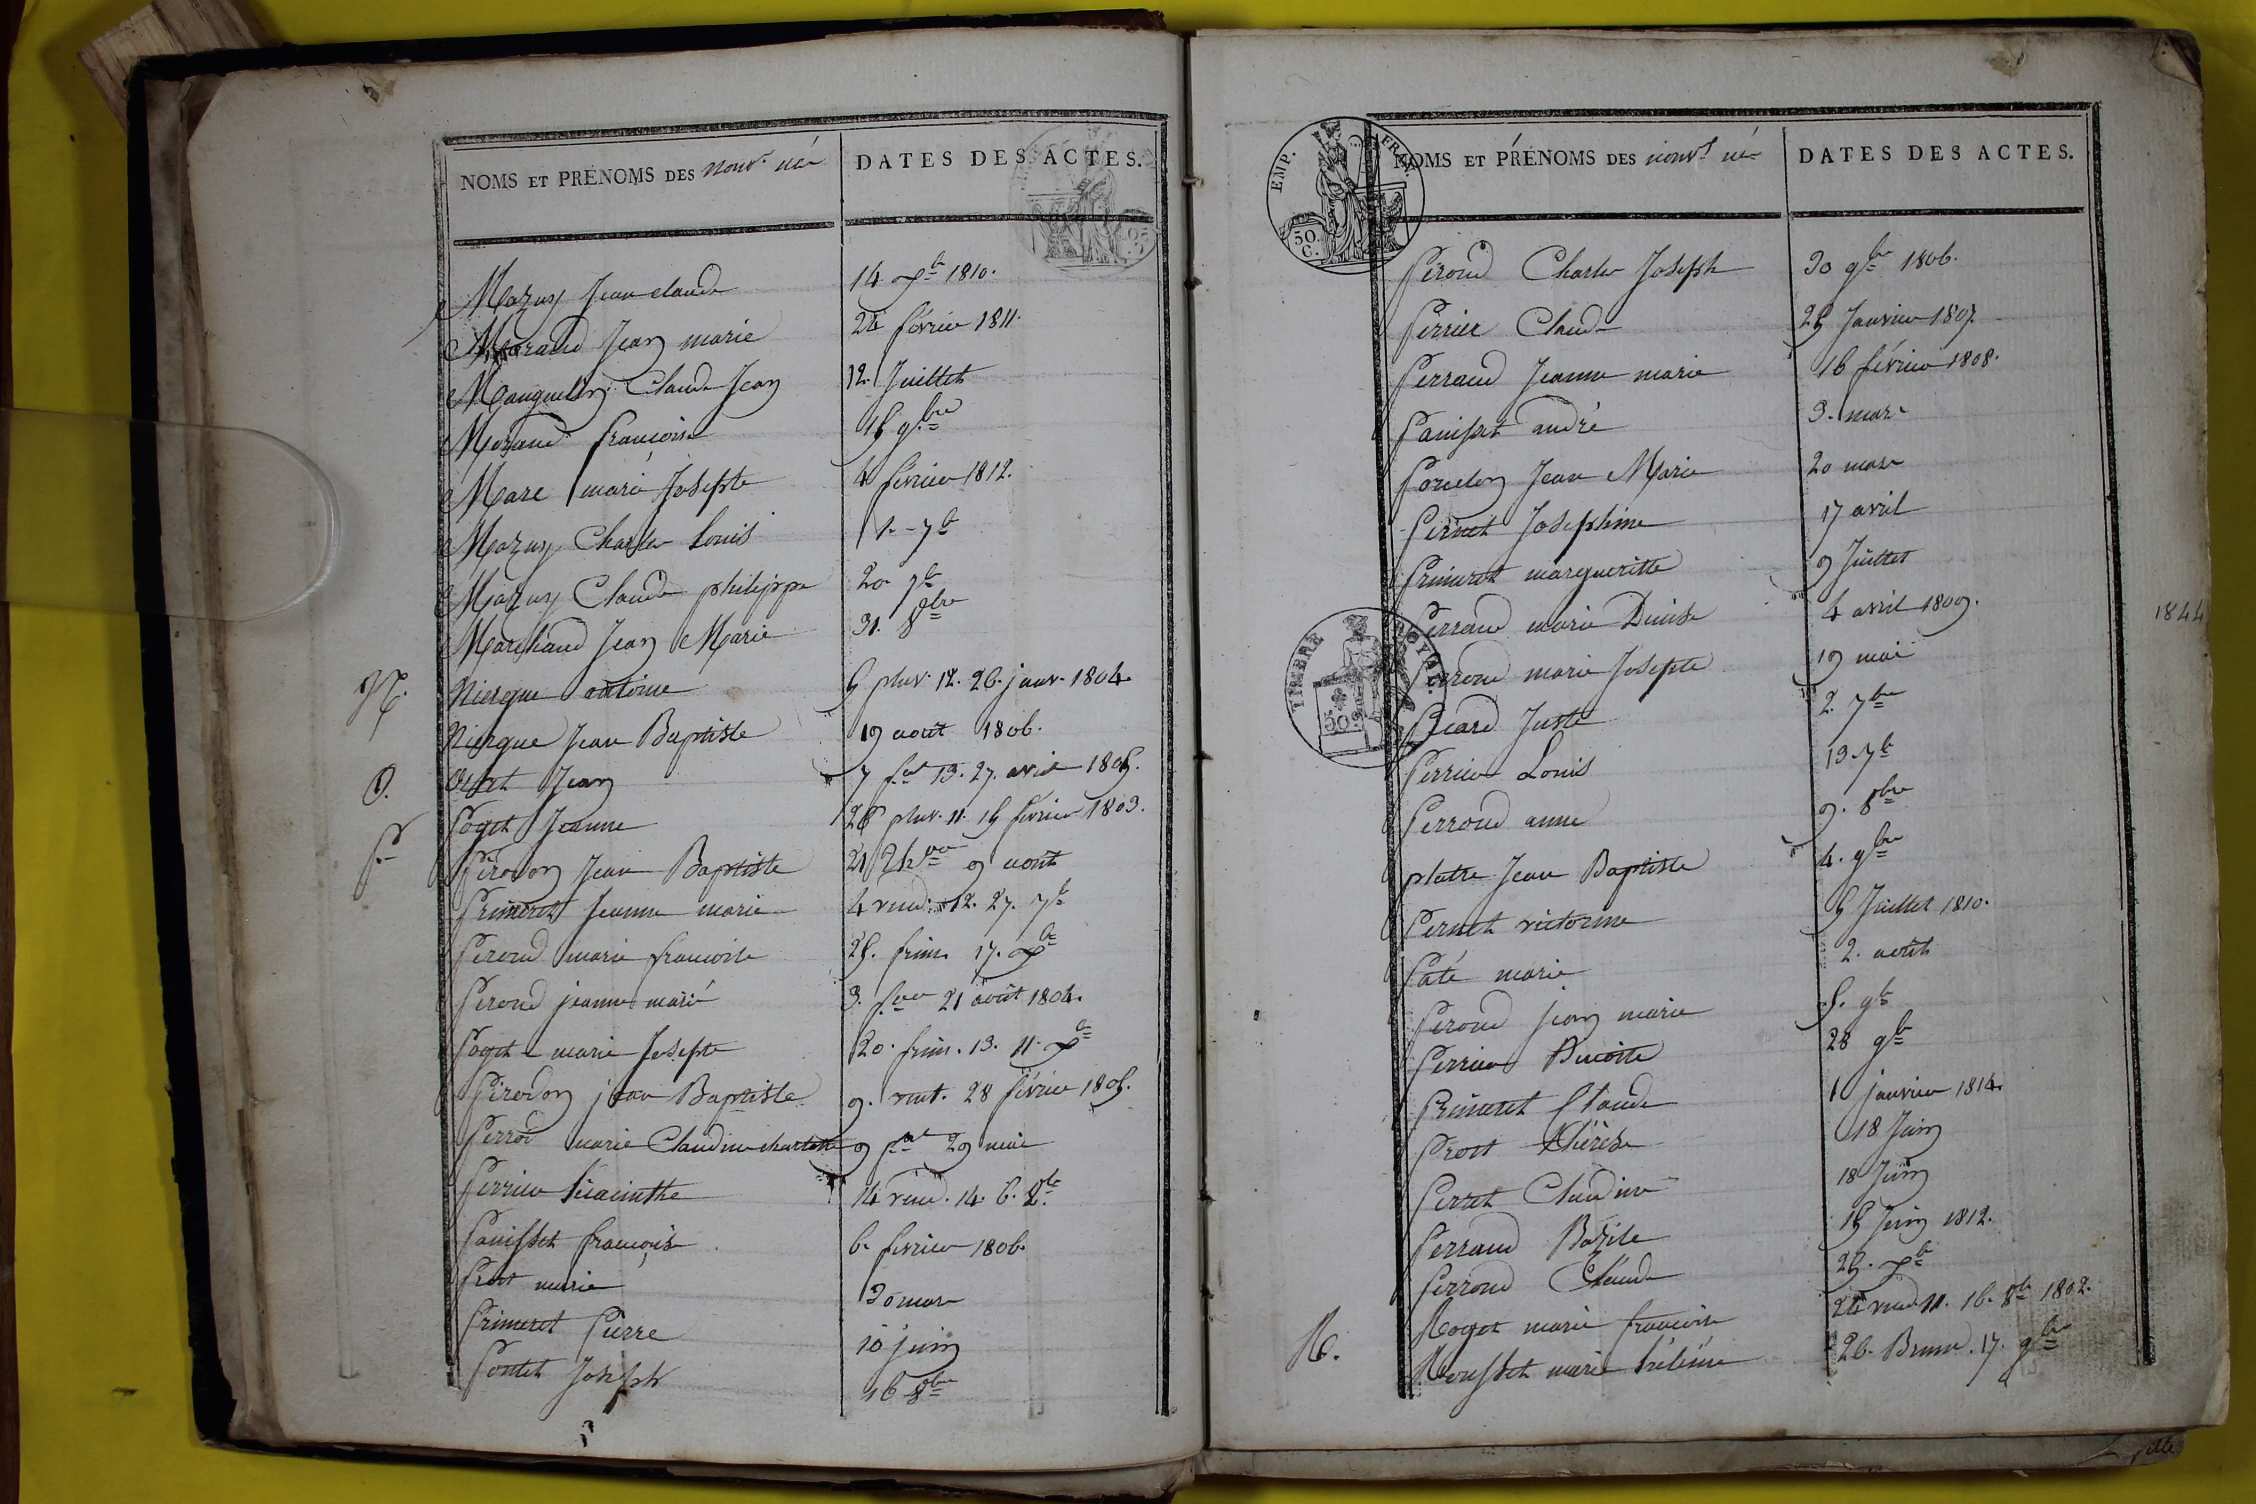 NOMS ET PRÉNOMS DES nouv. né
DATES DES ACTES.
Mazuy Jean claude 14 Xbre 1810.
Morand Jean marie 24 février 1811.
Mauguelin Claude Jean 12 Juillet
Morand françoise 15 9bre
Mare marie Josephte 4 février 1812.
Mazuy Charles Louis 1er 7b
Mazuy Claude philippe 20 7b
Marchand Jean Marie 31. 8bre
N. Niergue antoine 5 pluv. 12. 26. janv. 1804.
Niergue Jean Baptiste 19 août 1806.
O. Jean 7 fal 13. 27. avril 1805.
P Poget Jeanne 26 pluv. 11. 15 février 1803.
Pirodon Jean Baptiste 21 Thor 9 août
Primeret Jeanne marie 4 vend. 12. 27. 7b
Peroud marie françoise 25. frim. 17. Xb
Peroud jeanne marie 3. for 21 août 1804.
Poget marie Josephte 20. frim. 13. 11. Xb
Pirodon jean Baptiste 9. vent. 28 février 1805.
Perrod marie Claudine charlotte 9 pal 29 mai
Perrier hiacinthe 14 vend. 14. 6. 8b
Panisset françois 6. février 1806.
Prost marie 30 mars
Primeret Pierre 10 juin
Pontet Joseph 16 8bre
EMP. FR.
50. C.
NOMS ET PRÉNOMS DES nouv. né
DATES DES ACTES.
Péroud Charles Joseph 30 9bre 1806.
Perrier Claude 25 Janvier 1807.
Perraud Jeanne marie 16 février 1808.
Panisset andré 3. mars
Poncelon Jean Marie 20 mars
Pernet Josephine 17 avril
Primeret margueritte 9 Juillet
Perraud marie Denise 4 avril 1809.
1844
TIMBRE ROYAL
50
Perroud marie Josephte 19 mai
Picard Juste 2 7bre
Perrier Louis 13 7b
Perroud anne 9. 8bre
platre Jean Baptiste 4. 9bre
Pernet victorine 5 Juillet 1810.
Paté marie 2. août
Peroud Jean marie 5. 9b
Perrier Benoite 28 9b
Primeret Claude 1 janvier 1814.
Prost thérèse 18 Juin
Perret Claudine 18 Juin
Perraud Bazile 15 Juin 1812.
Perroud Claude 25. Xb
R. Roget marie françoise 24 vend. 11. 16. 8b 1802.
Rousset marie hélène 26. Brum. 17. 9b